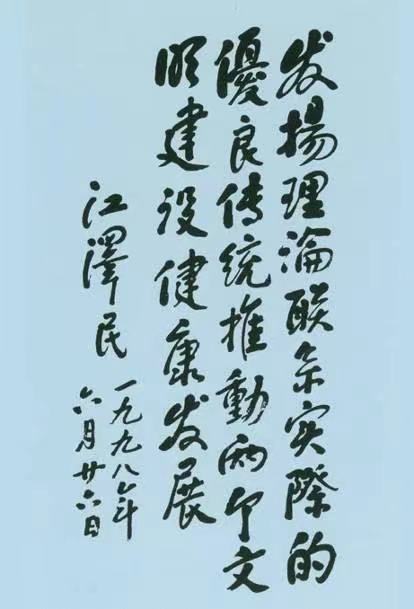 发揚理論联系实際的
優良传统推動两个文
明建设健康发展
江澤民
一九九八年
六月廿六日